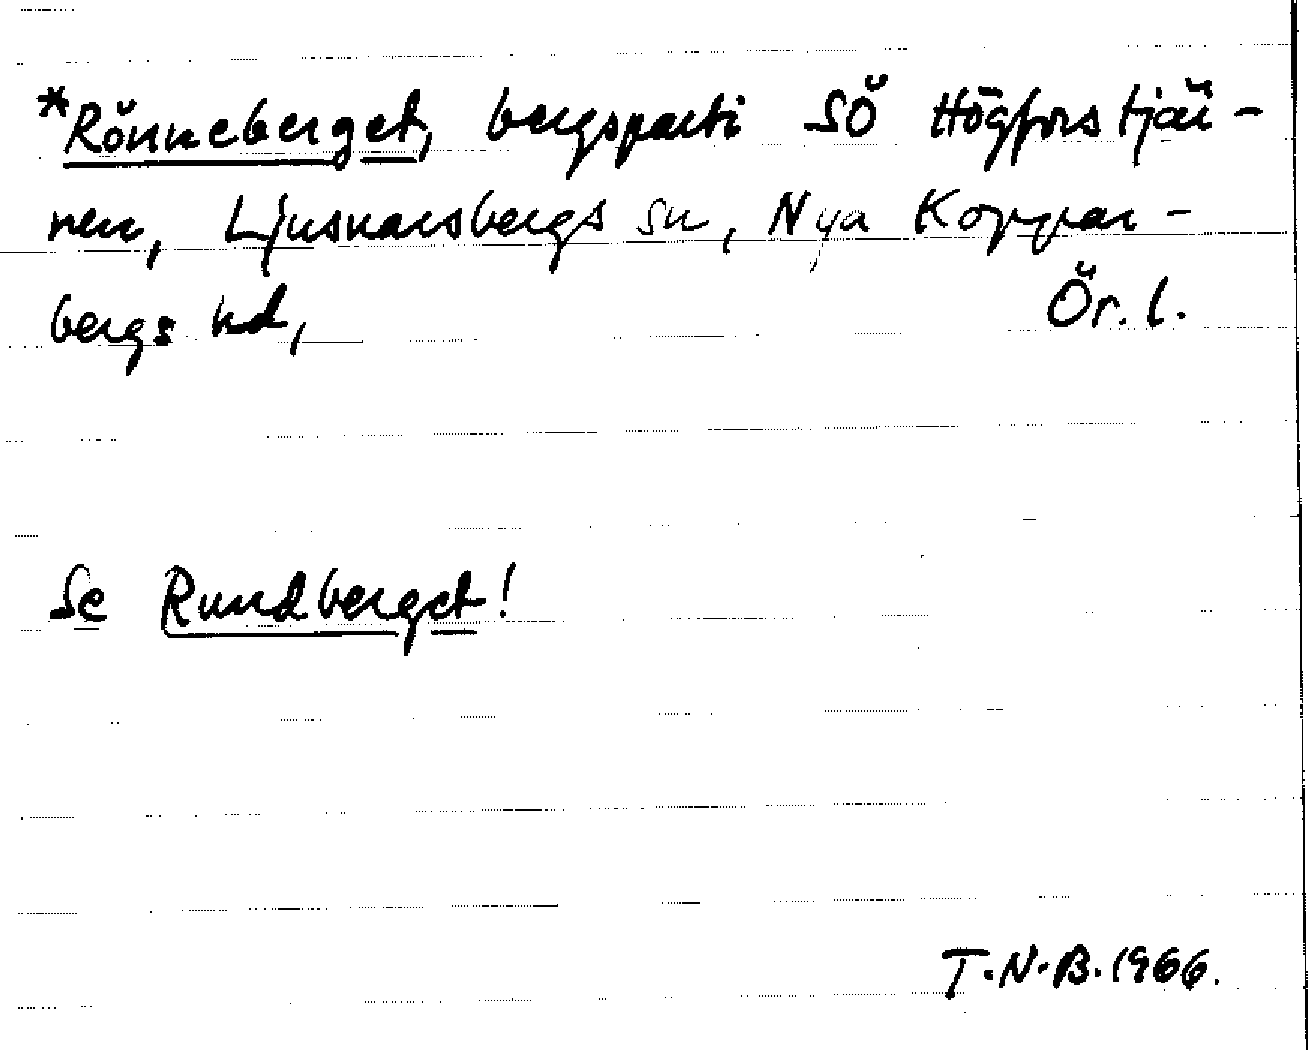 *Rönneberget, bergsparti SÖ Högforstjär-
nen, Ljusnarsbergs sn, Nya Koppar-
bergs hd, Ör. l.
Se Rundberget!
T.N.B. 1966.